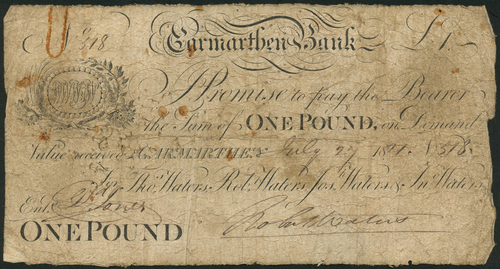 No 518 Carmarthen Bank £1.
I Promise to pay the Bearer
the Sum of ONE POUND, on Demand
Value received CARMARTHEN July 27 18 518
For Thos. Waters, Robt. Waters, Jos. Waters & Jn. Waters
Entd. Jones Robt Waters
ONE POUND